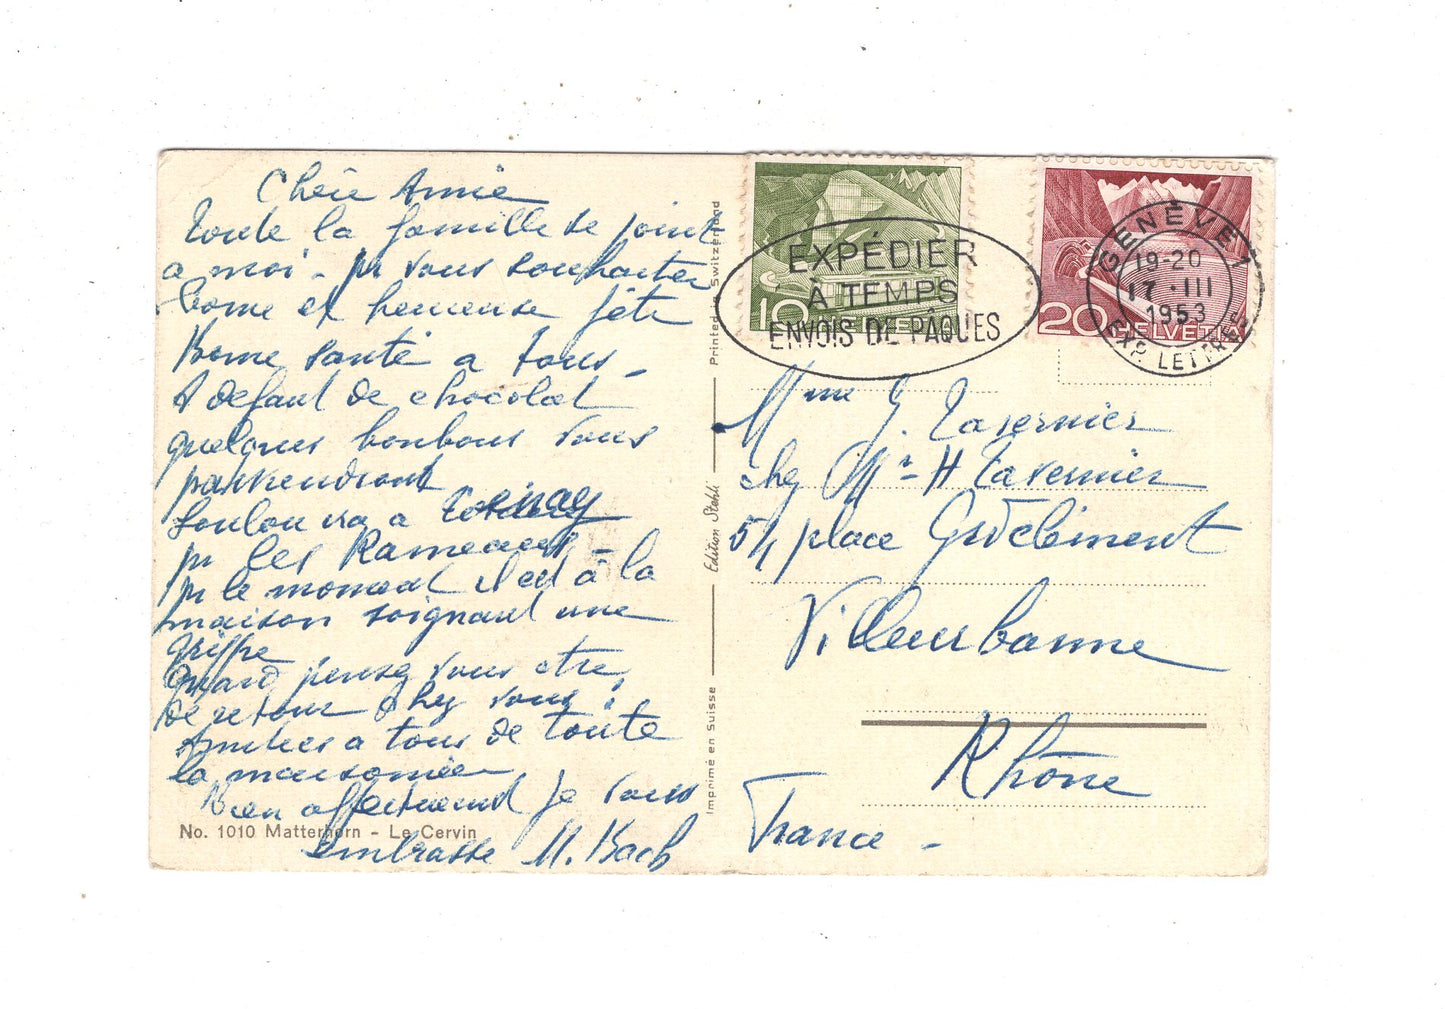 Chère Annie
Toute la famille se joint
a moi - pr vous souhaiter
bonne et heureuse fête
Bonne santé a tous -
A defaut de chocolat
quelques bonbons vous
parviendront
Loulou va a
pr les Rameaux -
pr le moment il est à la
maison soignant une
griffe
Quand pensez vous etre
de retour chez vous ?
Amitiés a tous de toute
la maisonnée
Bien affectueust je vous
embrasse M. Bach
No. 1010 Matterhorn - Le Cervin
Imprimé en Suisse
Edition Stehli
Printed in Switzerland
10 HELVETIA
20 HELVETIA
EXPÉDIER
À TEMPS
ENVOIS DE PÂQUES
GENÈVE 1
19-20
17.-III
1953
EXP. LETTRES
Mme J. Tavernier
chez Mr H Tavernier
51 place Grdclément
Villeurbanne
Rhône
France -